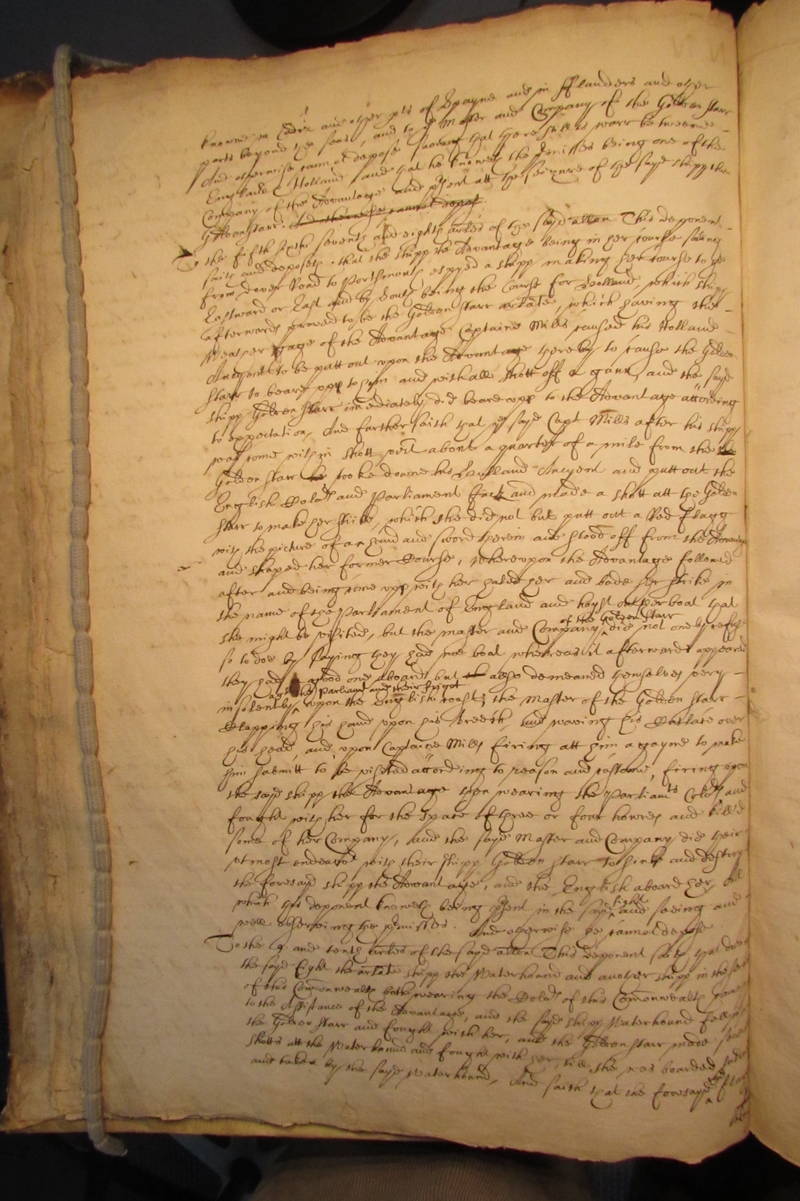 knowne in Cadiz and other pts of Spayne and in fflanders and other
parts beyond the seas, and to ye Master and Company of the Golden Starr
And otherwise cannot depose saveing that there is warr betweene
England & Holland and that he knoweth the premisses being one of the
Company of the Advantage and present att the seizure of the sayd shipp the
Golden Starr. And otherwise cannot depose
To the fifth sixth seventh and eighth arles of the sayd allon This deponent
saith and deposeth that the shipp the Advantage being in her course sailing
from Dover Road to Portsmouth espyed a shipp making her course to the
Eastward or East and by South being the Course for Holland which shipp
afterwards proved to be the Golden Starr arlate, which having the
Weather gage of the Advantage Captaine Mills caused his Holland
Ancyent to be putt out upon the Advantage thereby to cause the Golden
Starr to beare upp to him and withall shott off a gunn, and the sayd
shipp Golden Starr imediately did beare upp to the Advantage according
to expectation, And further saith that ye sayd Capt Mills after his shipp
was come within shott vizt about a quarter of a mile from the
Golden Starr tooke downe his Holland Ancyent and putt out the
English Colrs and Parliament Jack and made a shott att the Golden
Starr to make her strike, which she did not but putt out a Red fflagg
with the picture of an hand and sword therein and stood off from the Advantage
and shaped her former Course, Whereupon the Advantage followed
after and being come upp with her haled her and bade her strike in
the name of the Parliament of England and hoyst out her boat that
of the Golden Starr
she might be visited, but the master and Company did not onely refuse
so to doe by saying they had noe boat whereas it afterwards appeared
they had a good one aboard but also demeaned themselves very
insolently upon the English coast; the Master of the Golden Starr
Clapping his hand upon his breech, and waving his Cutlace over
his head, and upon Captaine Mills firing att him agayne to make
him submitt to be visited according to reason and custome, firing upon
the sayd shipp the Advantage then wearing the Parliamts Colrs and
fought with her for the space of three or four houres and killed
some of her Company, And the sayd Master and Company did their
utmost endeavor with their shipp Golden Starr to sinke and destroy
the foresayd shipp the Advantage, and the English aboard her all
fight
which this deponent knoweth being present in the sayd and seeing and
well observing the premisses. And otherwise he cannot depose
To the 9 and tenth arles of the sayd allon This deponent saith that
the sayd fight the arlate shipp the Waterhound and another shipp in the
of this Comonwealth both wearing the Colrs of this Comonwealth
to the Assistance of the Advantage, and the sayd shipp Waterhound
the Golden Starr and fought with her, and the Golden Starr made
shotts att the Waterhound and fought with her, till she was boarded
and taken by the sayd Waterhound, And saith that the foresayd